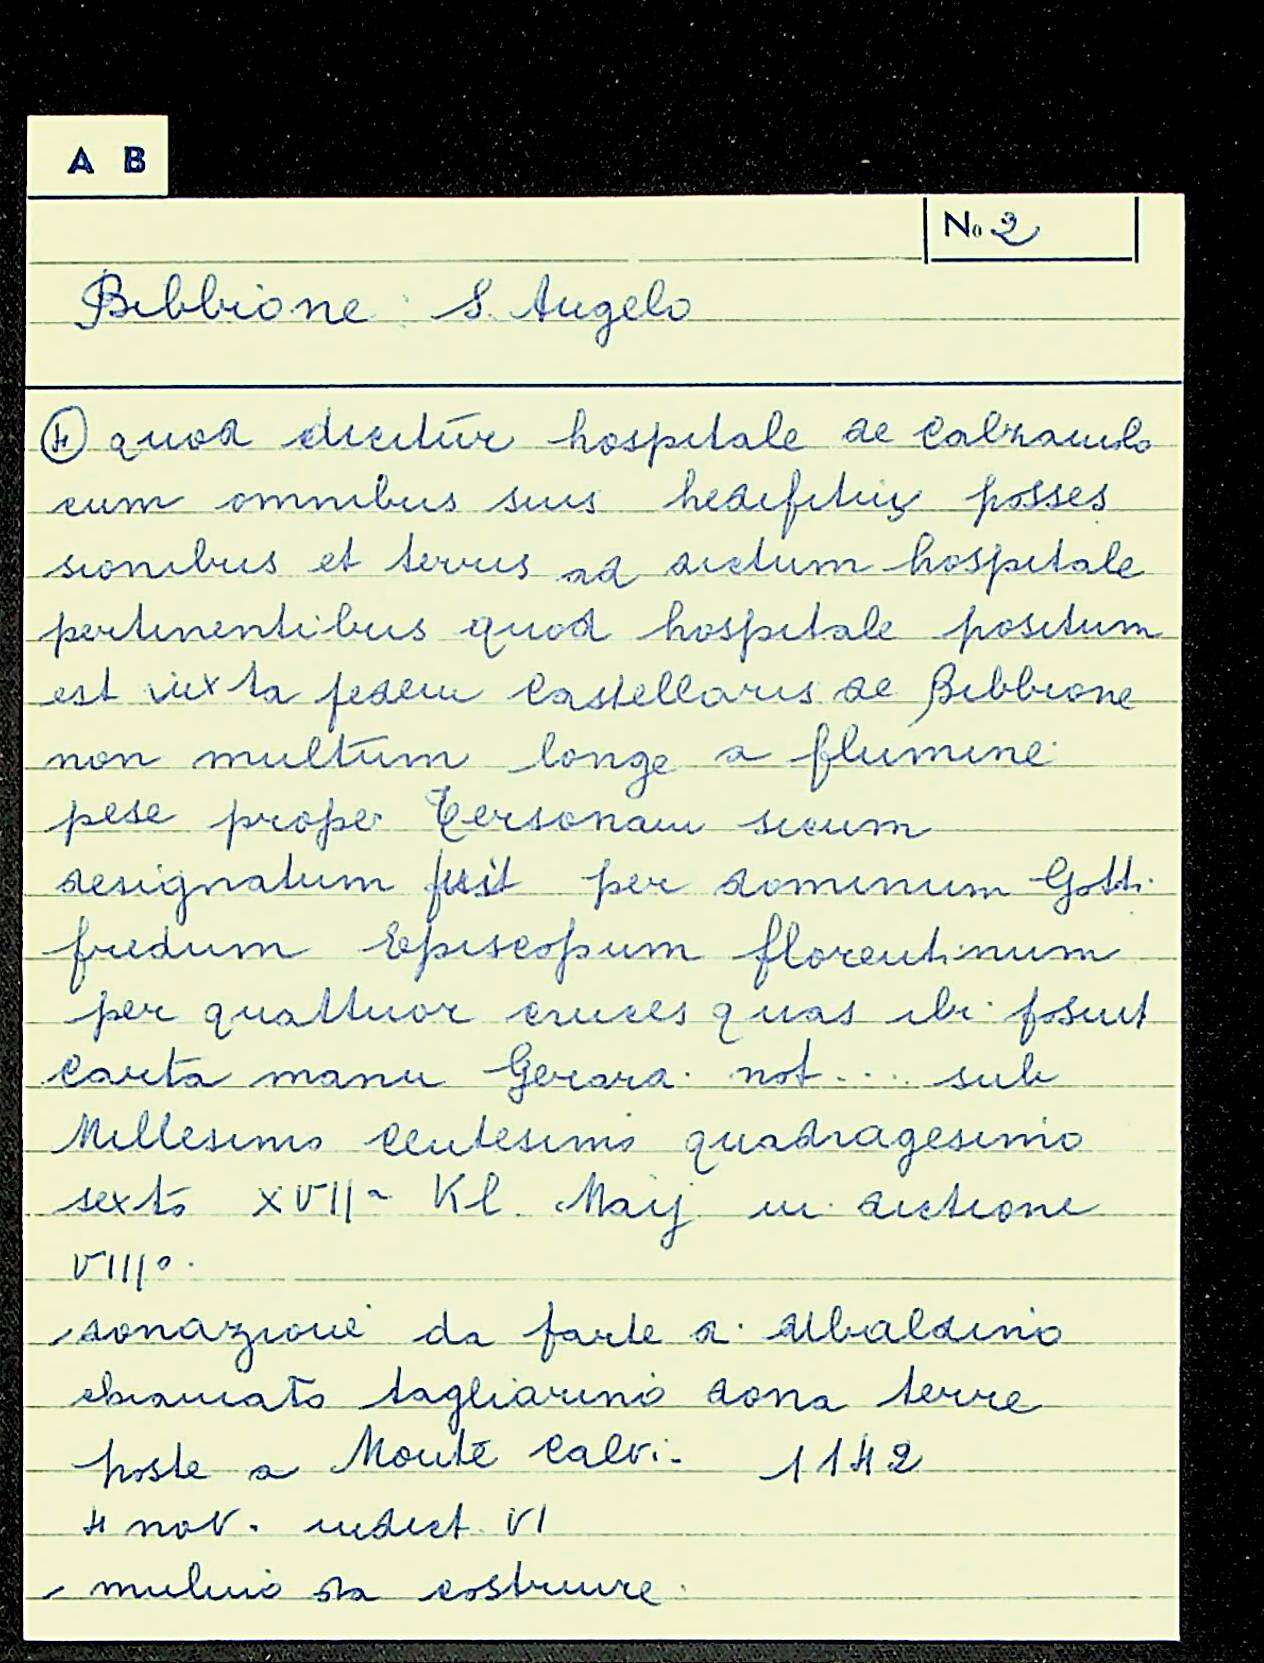 A B
No 2
Bibbione : S. Angelo
④ quod dicitur hospitale de Calzaiulo
cum omnibus suis hedifitiis posses
sionibus et terris ad dictum hospitale
pertinentibus quod hospitale positum
est iuxta pedem Castellaris de Bibbione
non multum longe a flumine
pese prope Tersonam sicum
designatum fuit per dominum Gotti
fredum Episcopum florentinum
per quattuor cruces quas ibi posuit
carta manu Gerard. not.... sub
Millesimo centesimo quadragesimo
sexto XVII Kl. Maij in dictione
VIII°.
- donazione da parte di Albaldino
chiamato tagliarino dona terre
poste a Monte Calvi. 1142
4 nov. indict. VI
- mulino da costruire